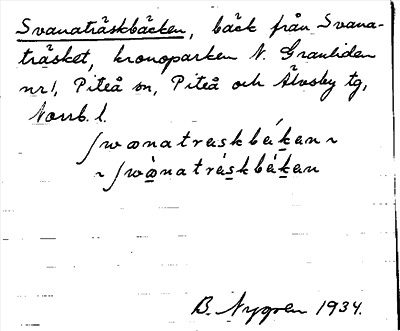 Svanaträskbäcken, bäck från Svana-
träsket, kronoparken N. Granliden
nr 1, Piteå sn, Piteå och Älvsby tg,
Norrb. l.
ʃwanatraskbákan ~
~ ʃwànatráskbákan
B. Nygren 1934.